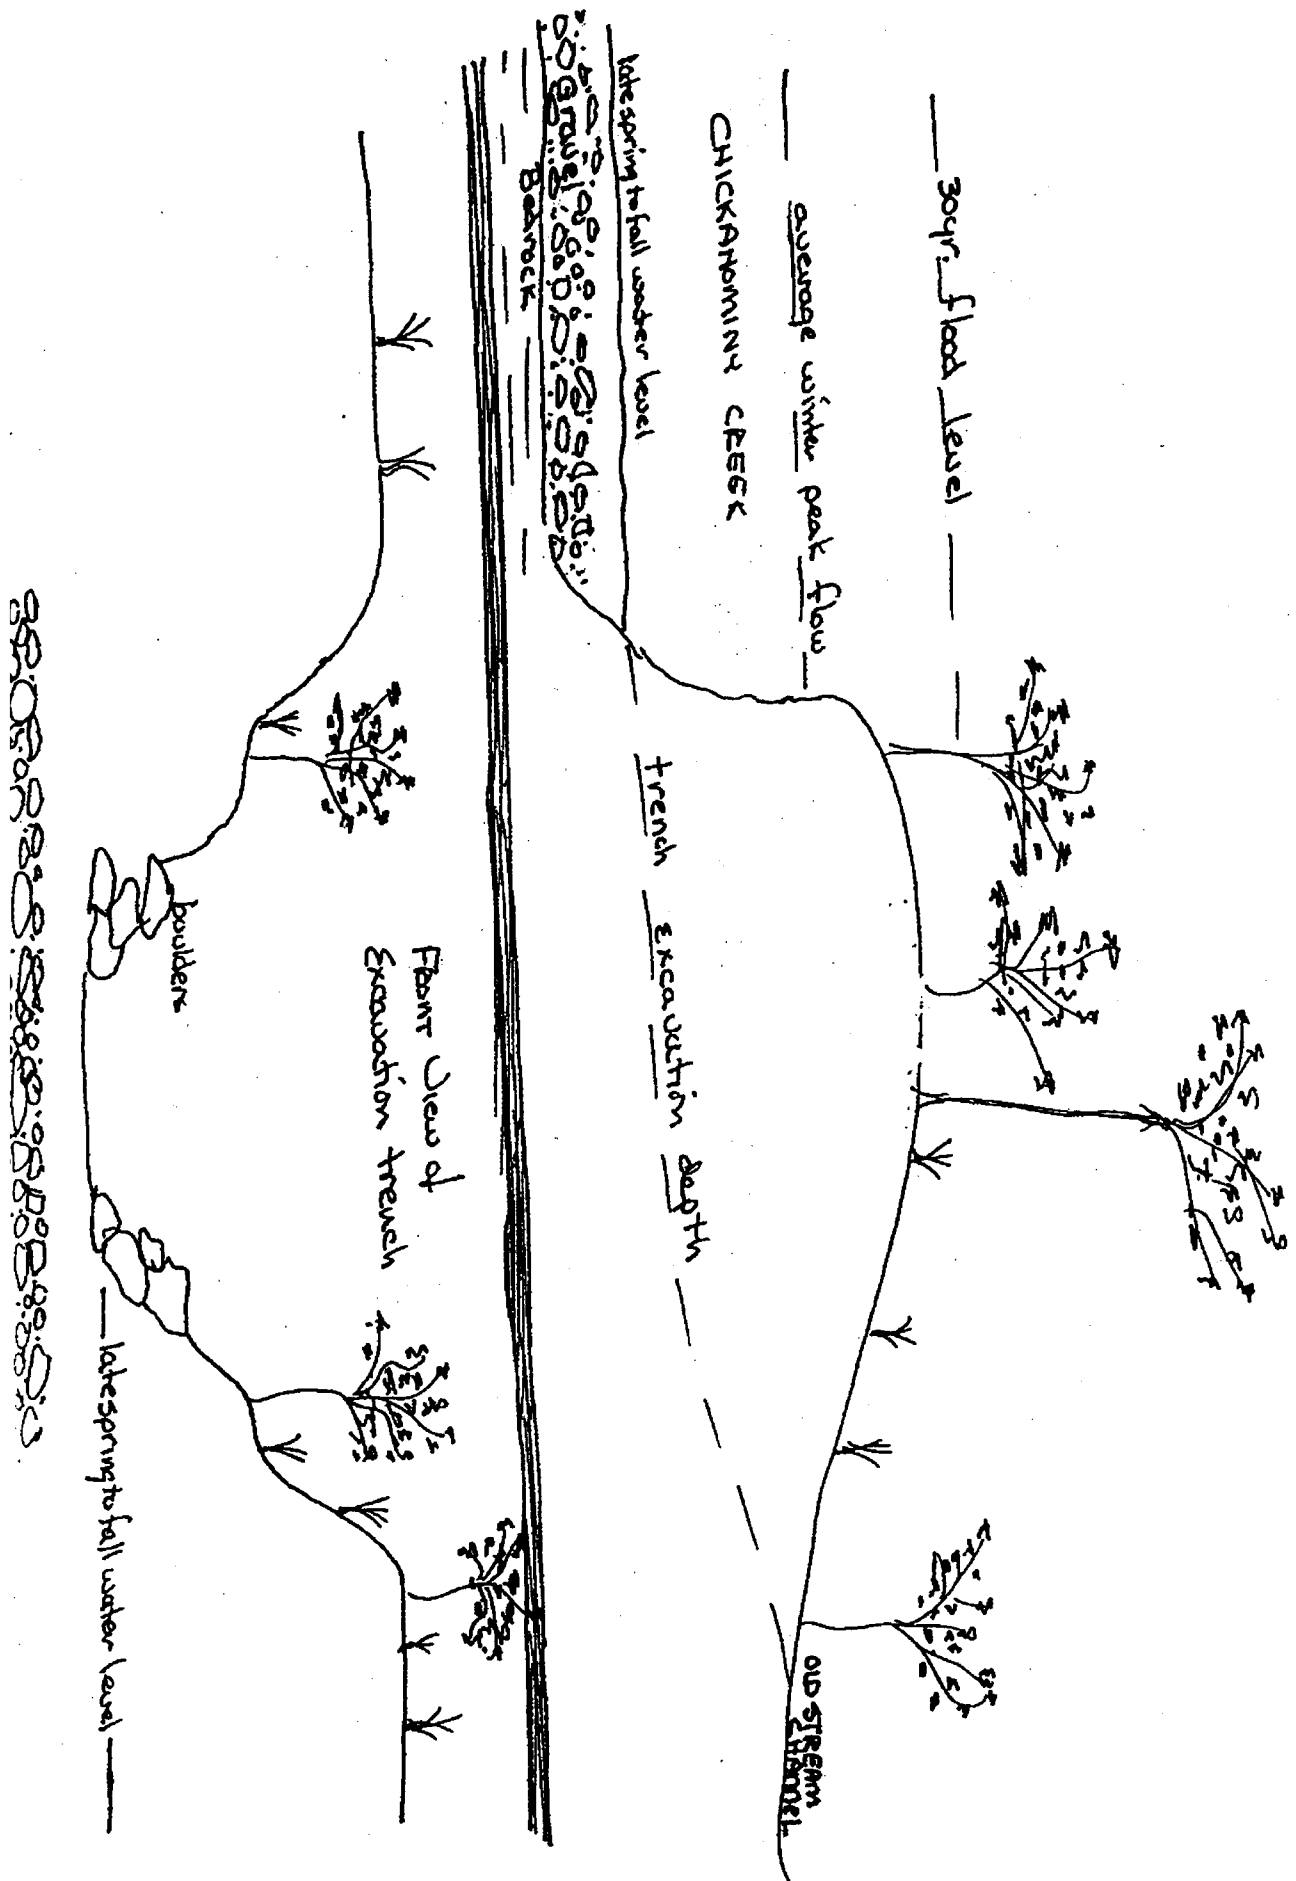 30yr. flood level
average winter peak flow
CHICKAHOMINY CREEK
late spring to fall water level
Gravel
Bedrock
trench excavation depth
OLD STREAM
CHANNEL
FRONT View of
Excavation trench
boulders
late spring to fall water level